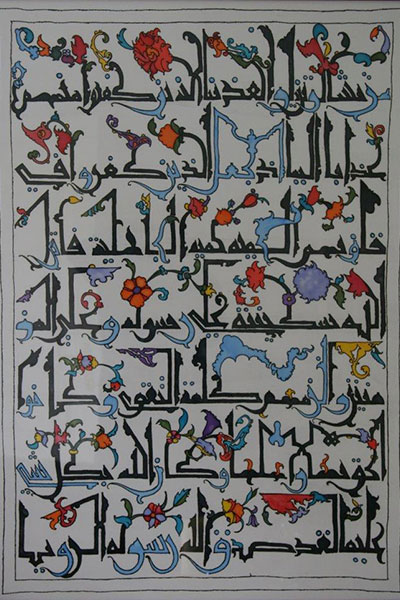 من يشا لو تزيلوا لعذبنا الذين كفروا منهم
عذابا اليما اذ جعل الذين كفروا في
قلوبهم الحمية حمية الجاهلية فانزل
الله سكينته على رسوله و على المو
منين و الزمهم كلمة التقوى و كانوا
احق بها و اهلها و كان الله بكل شي
عليما لقد صدق الله رسوله الرويا